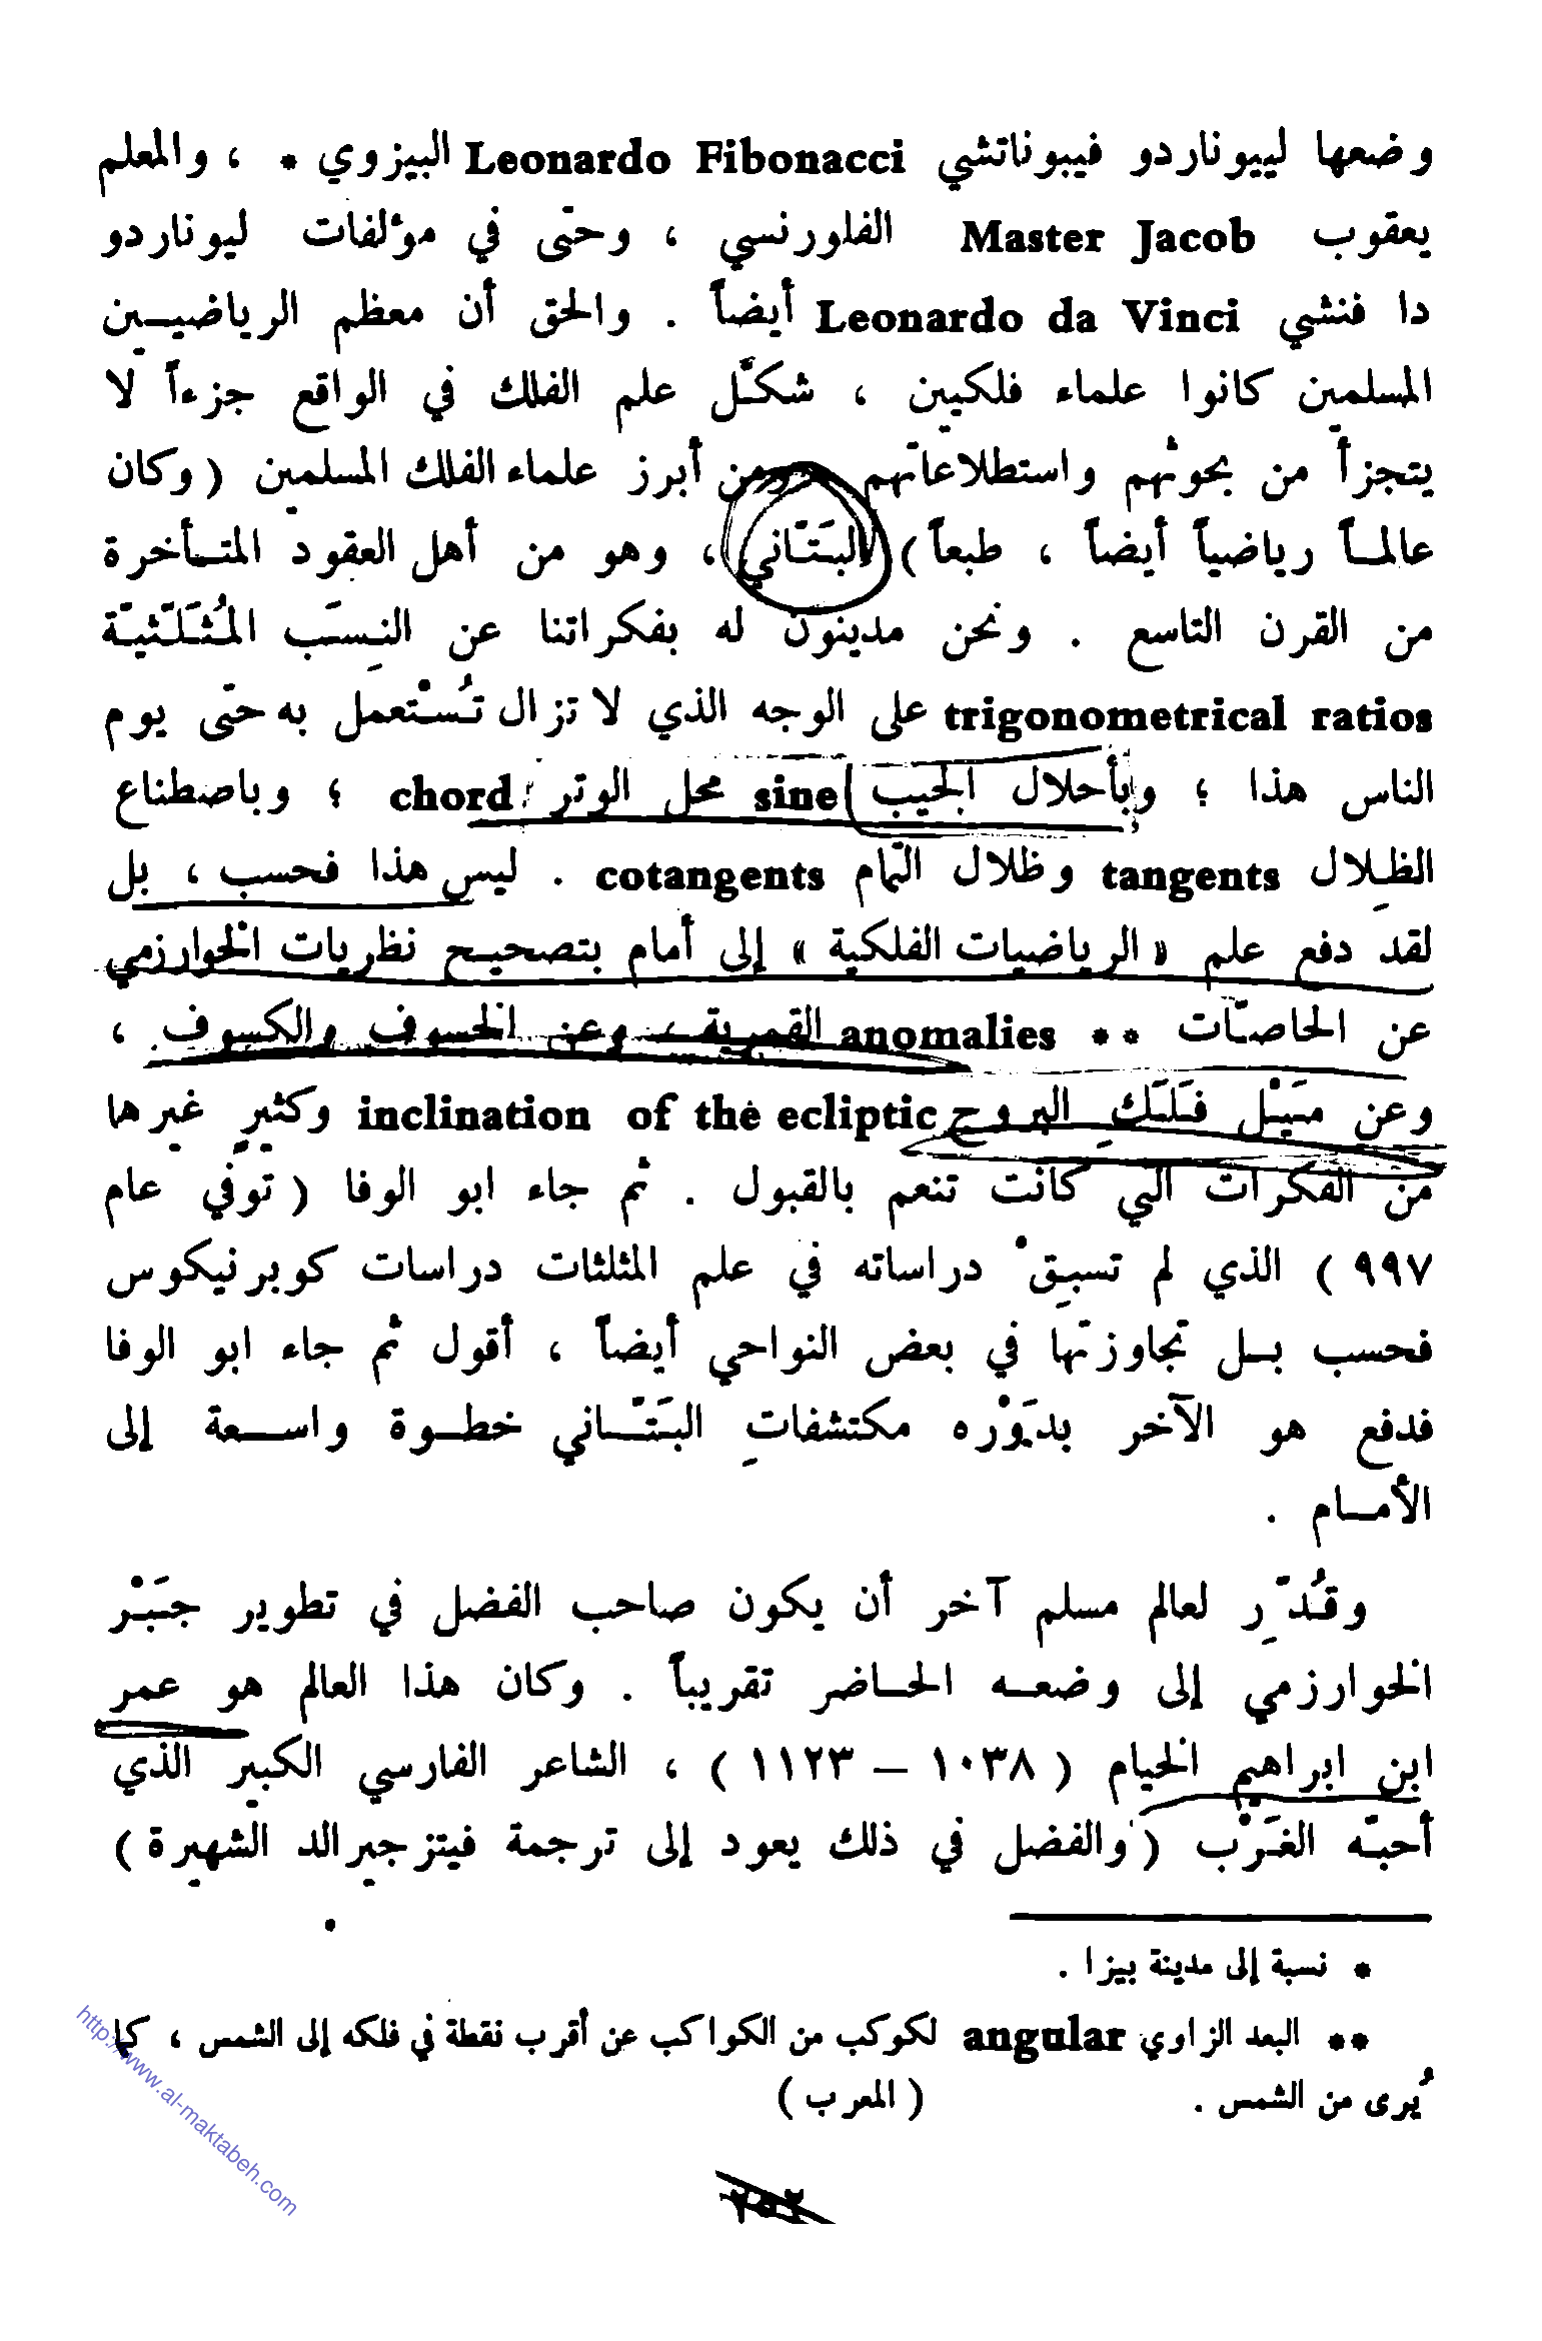 وضعها لييوناردو فيبوناتشي Leonardo Fibonacci البيزوي * ، والمعلم
يعقوب Master Jacob الفلورنسي ، وحتّى في مؤلفات ليوناردو
دا فنشي Leonardo da Vinci أيضاً . والحق أن معظم الرياضيــين
المسلمين كانوا علماء فلكيين ، شكّل علم الفلك في الواقع جزءاً لا
يتجزأ من بحوثهم واستطلاعاتهم ومن أبرز علماء الفلك المسلمين ( وكان
عالمــاً رياضياً أيضاً ، طبعاً ) البَتّاني ، وهو من أهل العقود المتــأخرة
من القرن التاسع . ونحن مدينون له بفكراتنا عن النِسَب المُثَلَّثيّة
trigonometrical ratios على الوجه الذي لا تزال تُسْتعمل به حتّى يوم
الناس هذا ؛ وبأحلال الجيب sine محل الوتر chord ؛ وباصطناع
الظِلال tangents وظلال التّمام cotangents . ليس هذا فحسب ، بل
لقد دفع علم « الرياضيات الفلكية » إلى أمام بتصحيح نظريات الخوارزمي
عن الحاصّات ** anomalies القمرية ، وعن الخسوف والكسوف ،
وعن مَيْل فَلَكِ البروج inclination of the ecliptic وكثيرٍ غيرها
من الفكرات التي كانت تنعم بالقبول . ثم جاء ابو الوفا ( توفي عام
٩٩٧ ) الذي لم تسبِقْ دراساته في علم المثلثات دراسات كوبرنيكوس
فحسب بــل تجاوزتها في بعض النواحي أيضاً ، أقول ثم جاء ابو الوفا
فدفع هو الآخر بدَوْره مكتشفاتِ البَتّــاني خطــوة واســـعة إلى
الأمــام .
وقُدِّر لعالم مسلم آخر أن يكون صاحب الفضل في تطوير جَبْر
الخوارزمي إلى وضعــه الحــاضر تقريباً . وكان هذا العالم هو عمر
ابن ابراهيم الخيام ( ١٠٣٨ – ١١٢٣ ) ، الشاعر الفارسي الكبير الذي
أحبّه الغَرْب ( والفضل في ذلك يعود إلى ترجمة فيتزجيرالد الشهيرة )
* نسبة إلى مدينة بيزا .
** البعد الزاوي angular لكوكب من الكواكب عن أقرب نقطة في فلكه إلى الشمس ، كما
يُرى من الشمس . ( المعرب )
٢٥٢
http://www.al-maktabeh.com